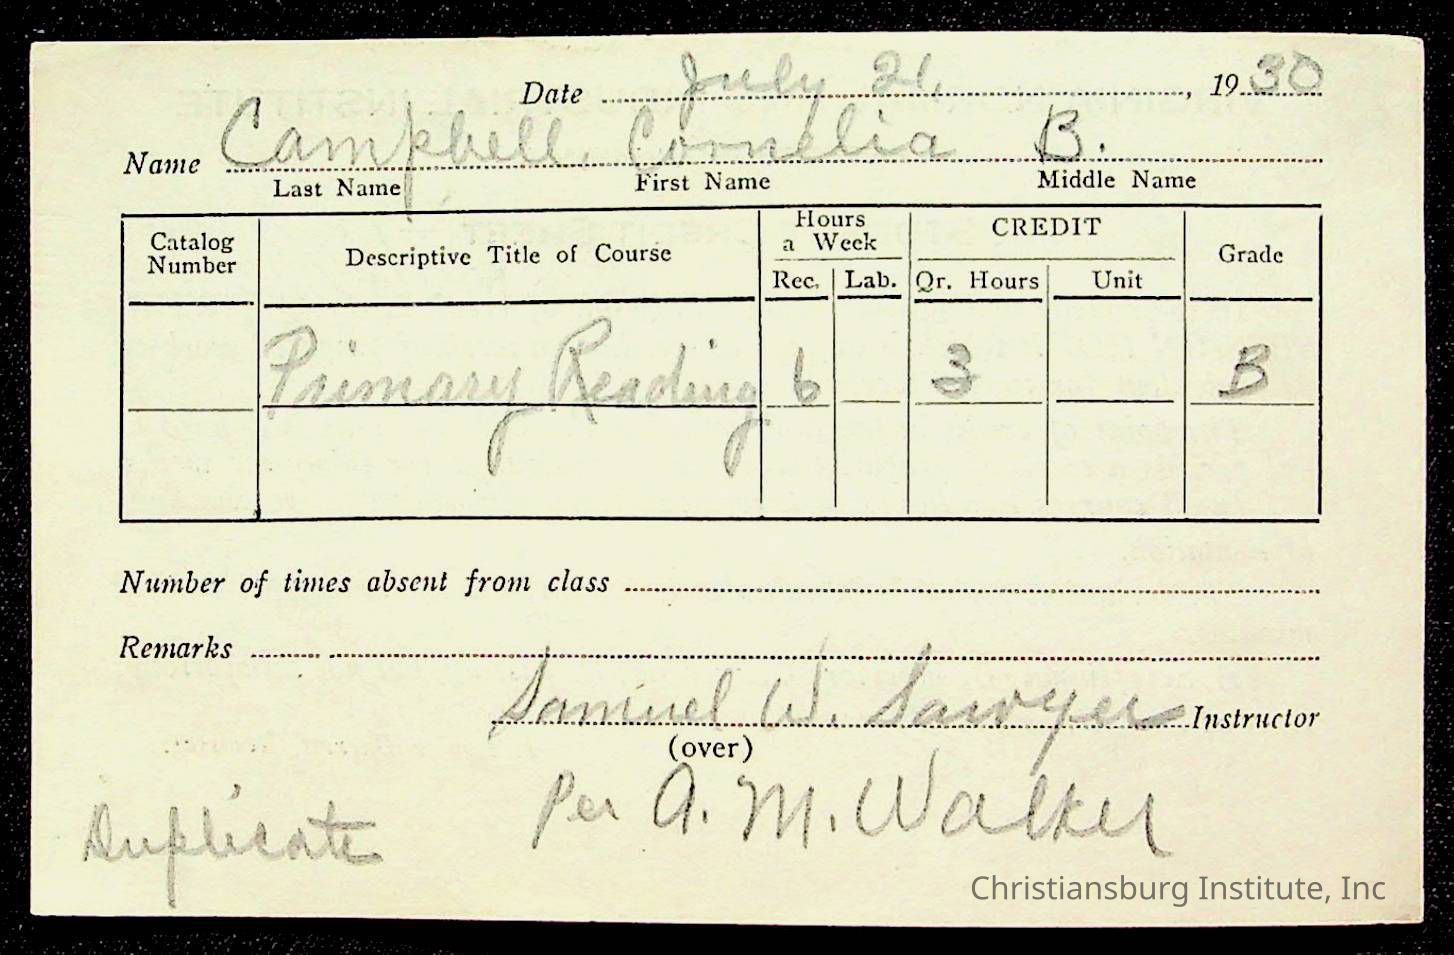 Date July 21, 1930
Name Campbell, Cornelia B.
Last Name First Name Middle Name
Catalog Number Descriptive Title of Course Hours a Week CREDIT Grade
Rec. Lab. Qr. Hours Unit
Primary Reading 6 3 B
Number of times absent from class
Remarks
Samuel W. Sawyer Instructor
(over)
Per A. M. Walker
Duplicate
Christiansburg Institute, Inc